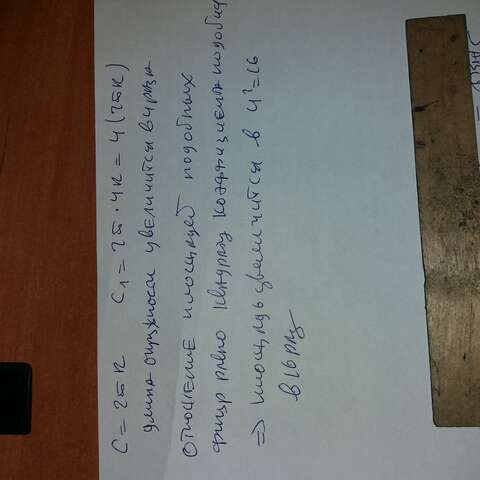 C = 2πR C₁ = 2π · 4R = 4(2πR)
длина окружности увеличится в 4 раза
Отношение площадей подобных
фигур равно квадрату коэффициента подобия
=> площадь увеличится в 4² = 16
в 16 раз